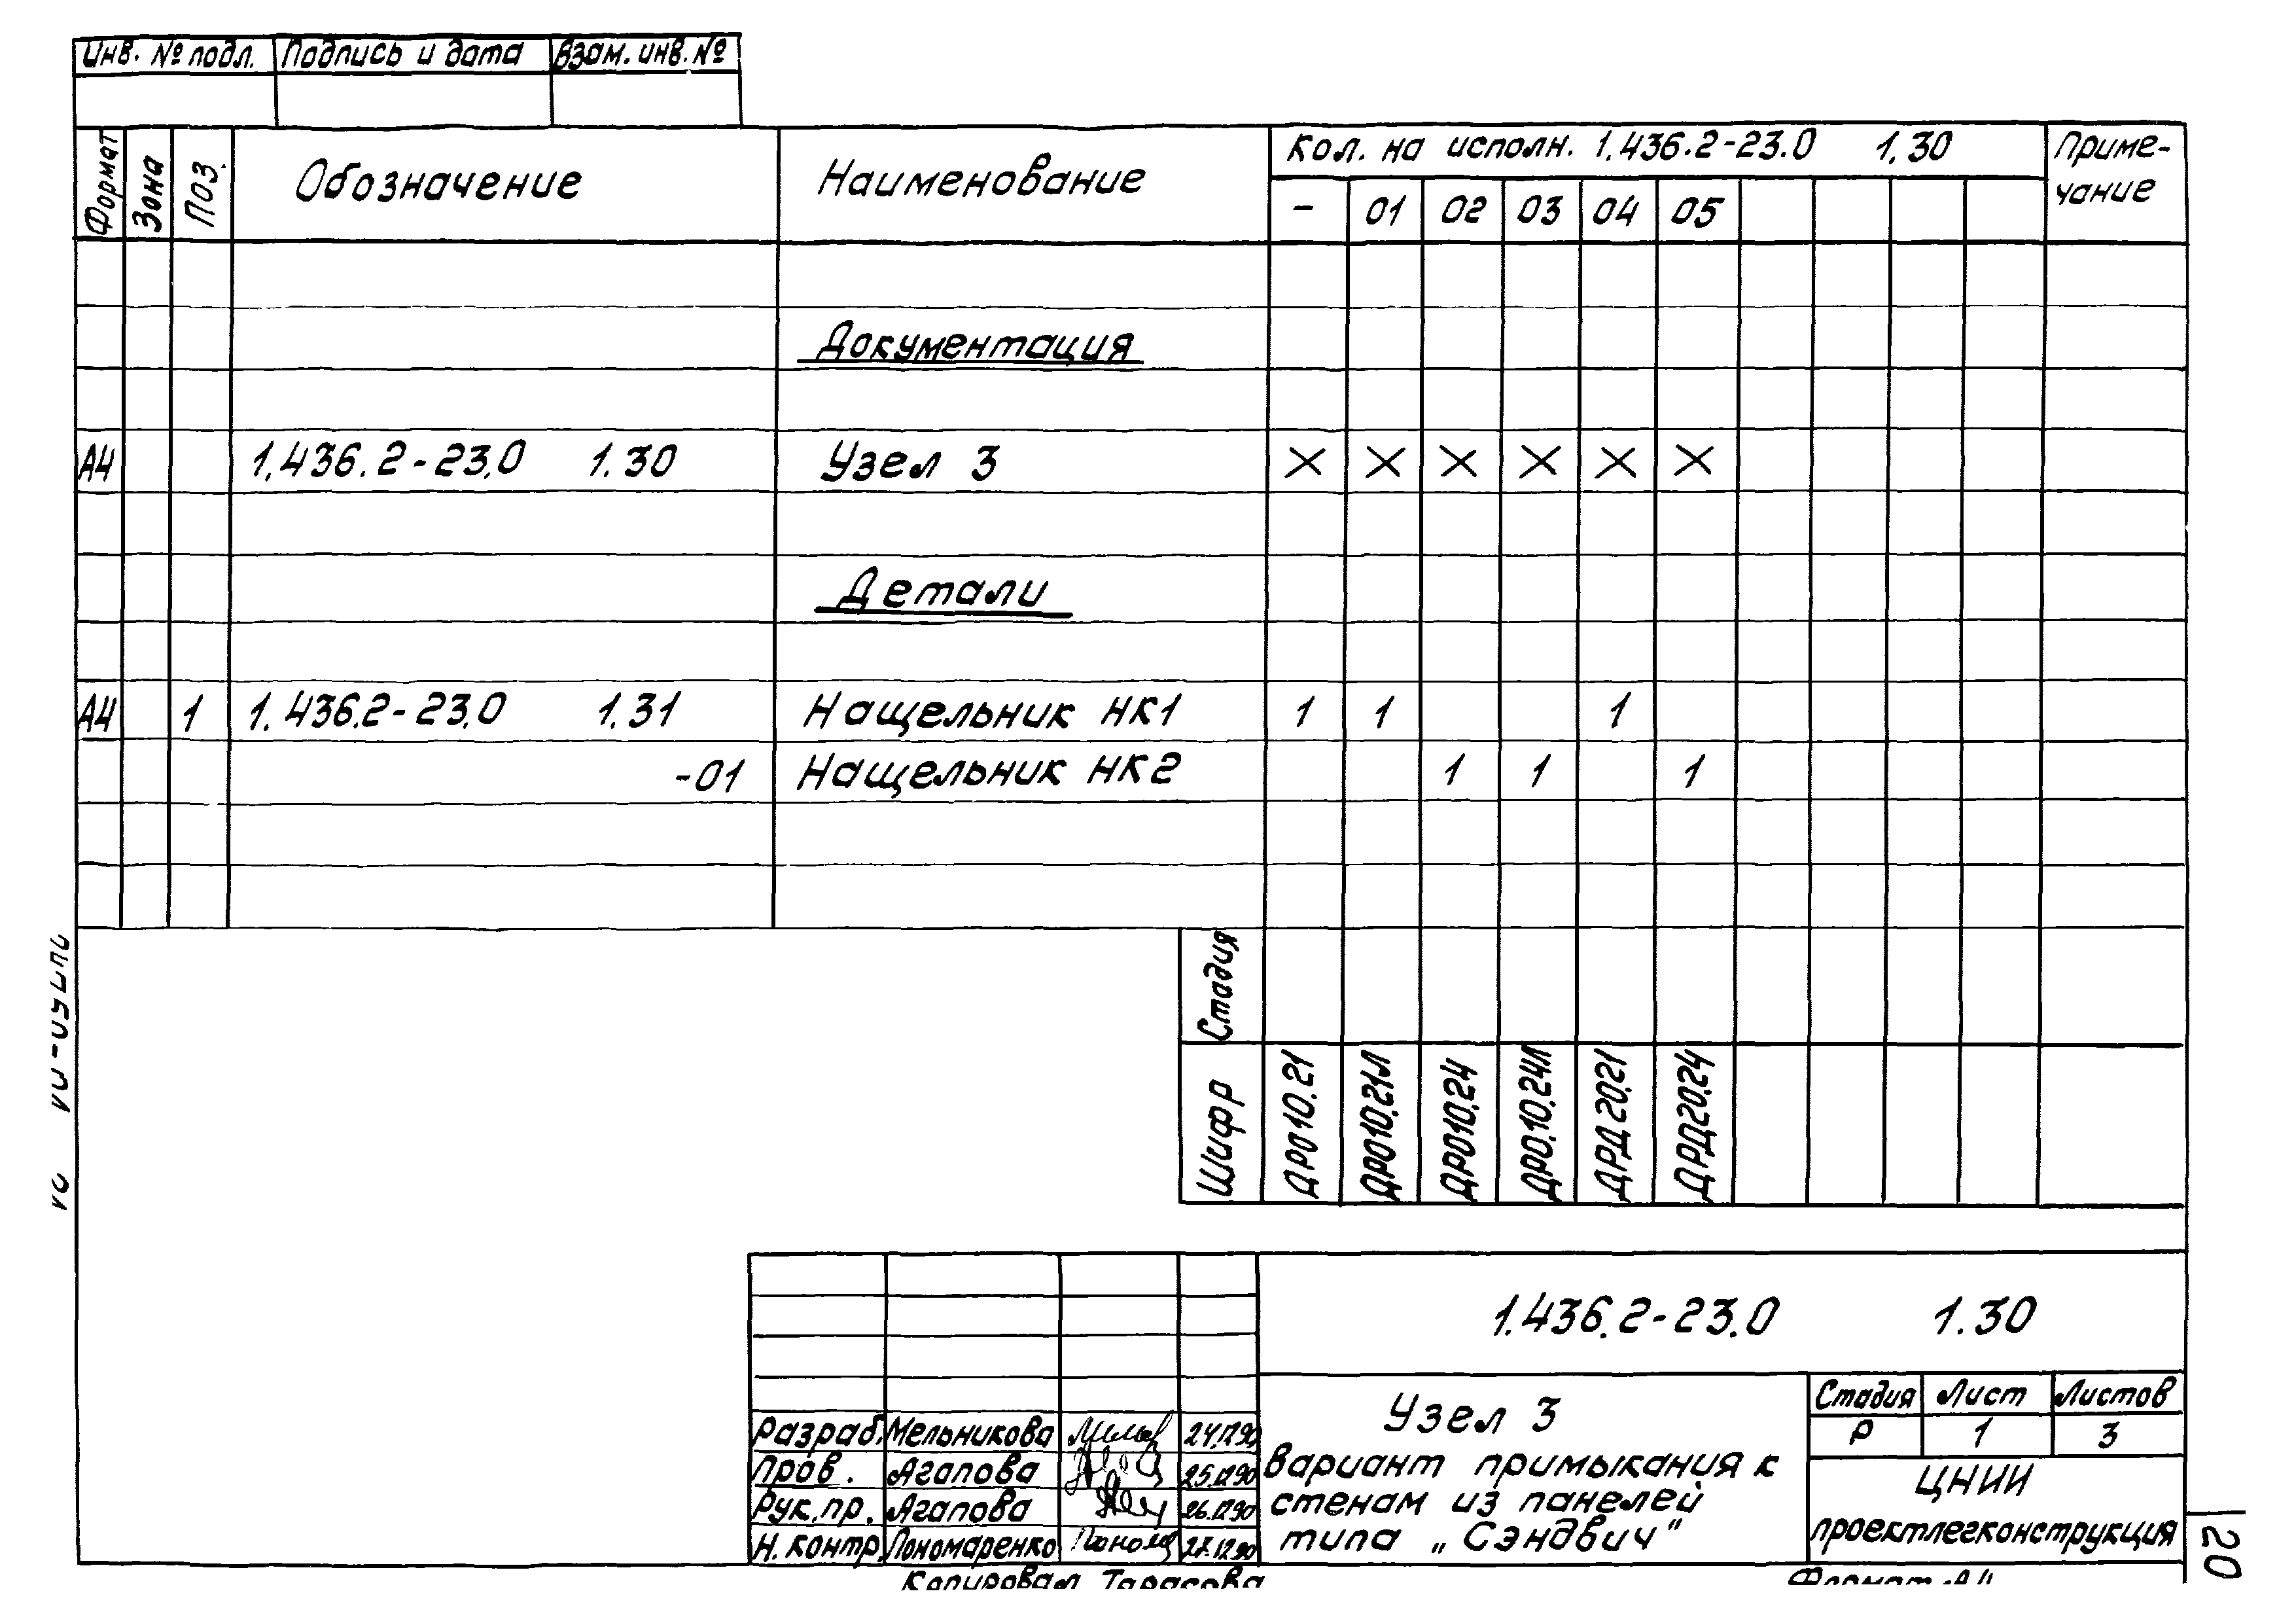 Инв. № подл. Подпись и дата Взам. инв. №
Формат Зона Поз. Обозначение Наименование Кол. на исполн. 1.436.2-23.0 1.30 Приме-
чание
- 01 02 03 04 05
Документация
А4 1.436.2-23.0 1.30 Узел 3 X X X X X X
Детали
А4 1 1.436.2-23.0 1.31 Нащельник НК1 1 1 1
-01 Нащельник НК2 1 1 1
Стадия
Шифр ДРО10.21 ДРО10.21Л ДРО10.24 ДРО.10.24Л ДРД20.21 ДРД20.24
1.436.2-23.0 1.30
Узел 3
Вариант примыкания к
стенам из панелей
типа „Сэндвич"
Стадия Лист Листов
Р 1 3
ЦНИИ
проектлегконструкция
Разраб. Мельникова 24.12.90
Пров. Агапова 25.12.90
Рук. пр. Агапова 26.12.90
Н. контр. Пономаренко 27.12.90
Копировал Тарасова
Формат А4
20